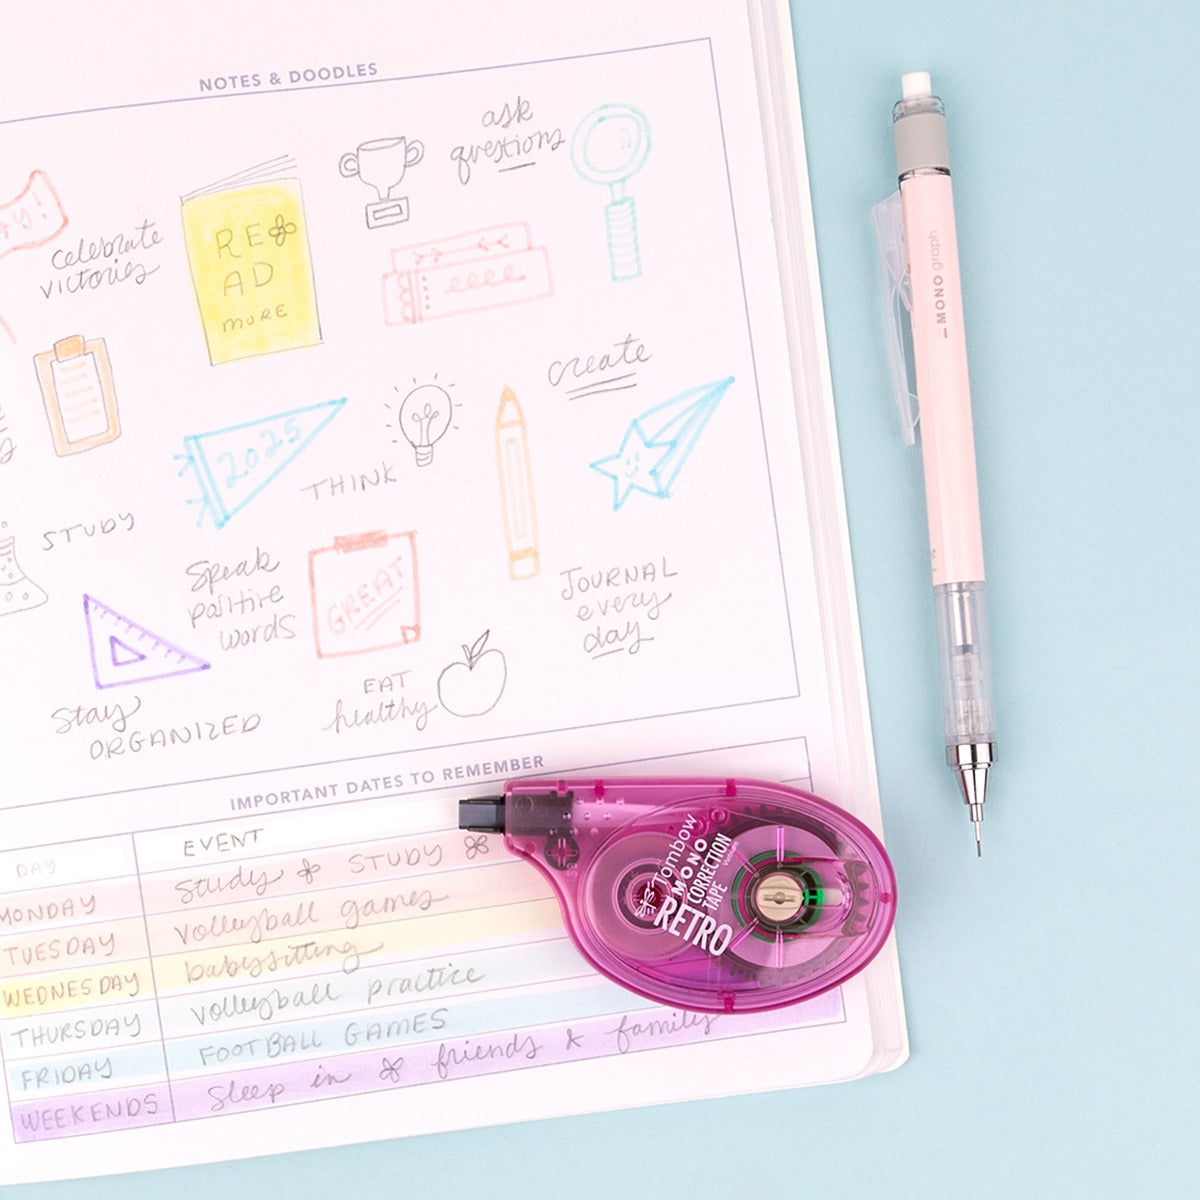 NOTES & DOODLES
AY!
celebrate
victories
RE
AD
MORE
ask
questions
create
2025
THINK
STUDY
Speak
positive
words
GREAT
JOURNAL
every
day
Stay
ORGANIZED
EAT
healthy
IMPORTANT DATES TO REMEMBER
DAY EVENT
MONDAY study STUDY
TUESDAY volleyball games
WEDNESDAY babysitting
THURSDAY volleyball practice
FRIDAY FOOTBALL GAMES
WEEKENDS Sleep in friends & family
Tombow
MONO
CORRECTION
TAPE
Vietnam
RETRO
MONO graph